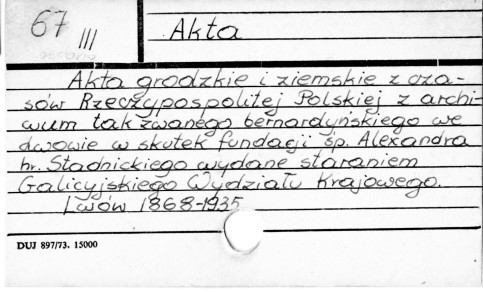 67 III
Akta
Akta grodzkie i ziemskie z cza-
sów Rzeczypospolitej Polskiej z archi-
wum tak zwanego bernardyńskiego we
dwowie w skutek fundacji śp. Alexandra
hr. Stadnickiego wydane staraniem
Galicyjskiego Wydziału Krajowego.
Lwów 1868-1935
DUJ 897/73. 15000